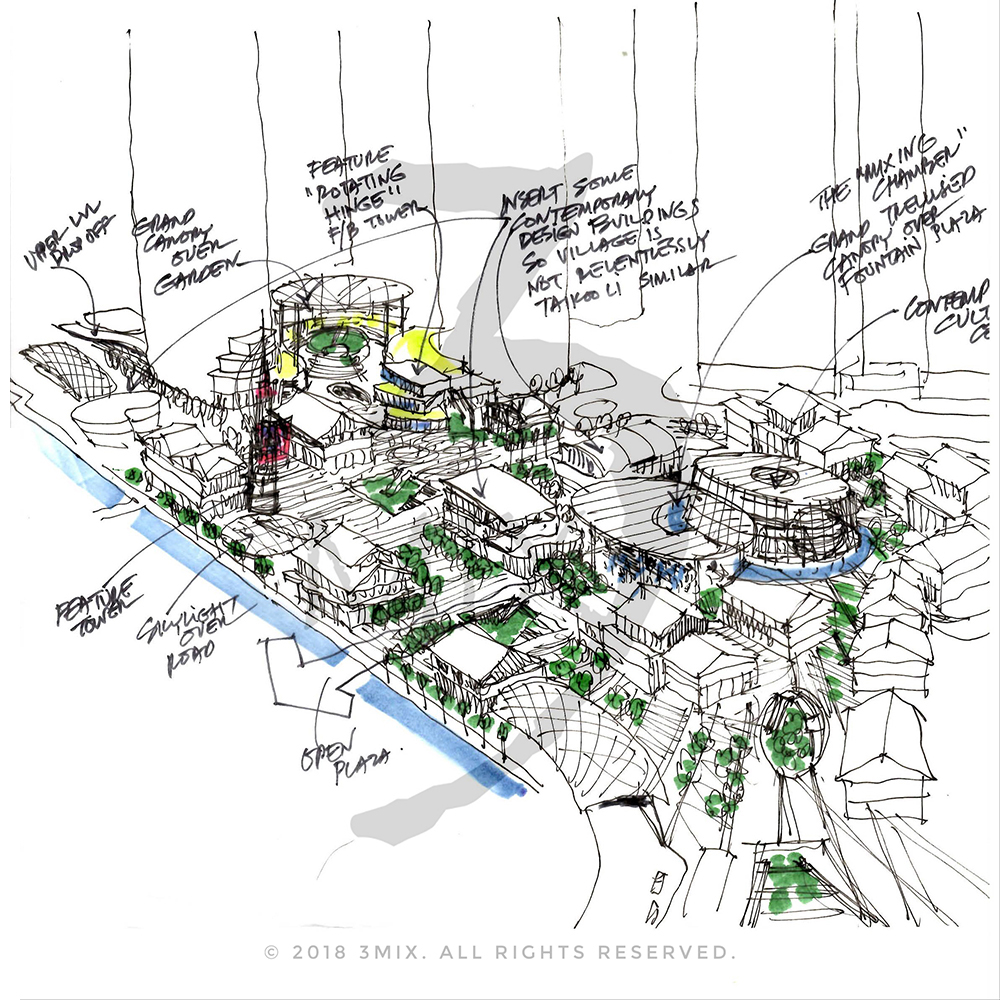 UPPER LVL
DROP OFF
GRAND
CANOPY
OVER
GARDEN
FEATURE
"ROTATING
HINGE"
F/B TOWER
INSERT SOME
CONTEMPORARY
DESIGN BUILDINGS
SO VILLAGE IS
NOT RELENTLESSLY
TAIKOO LI SIMILAR
THE "MIXING
CHAMBER"
GRAND TRELLISED
CANOPY OVER
FOUNTAIN PLAZA
CONTEMP
CULT
FEATURE
TOWER
SKYLIGHT
OVER
ROAD
OPEN
PLAZA.
3
© 2018 3MIX. ALL RIGHTS RESERVED.